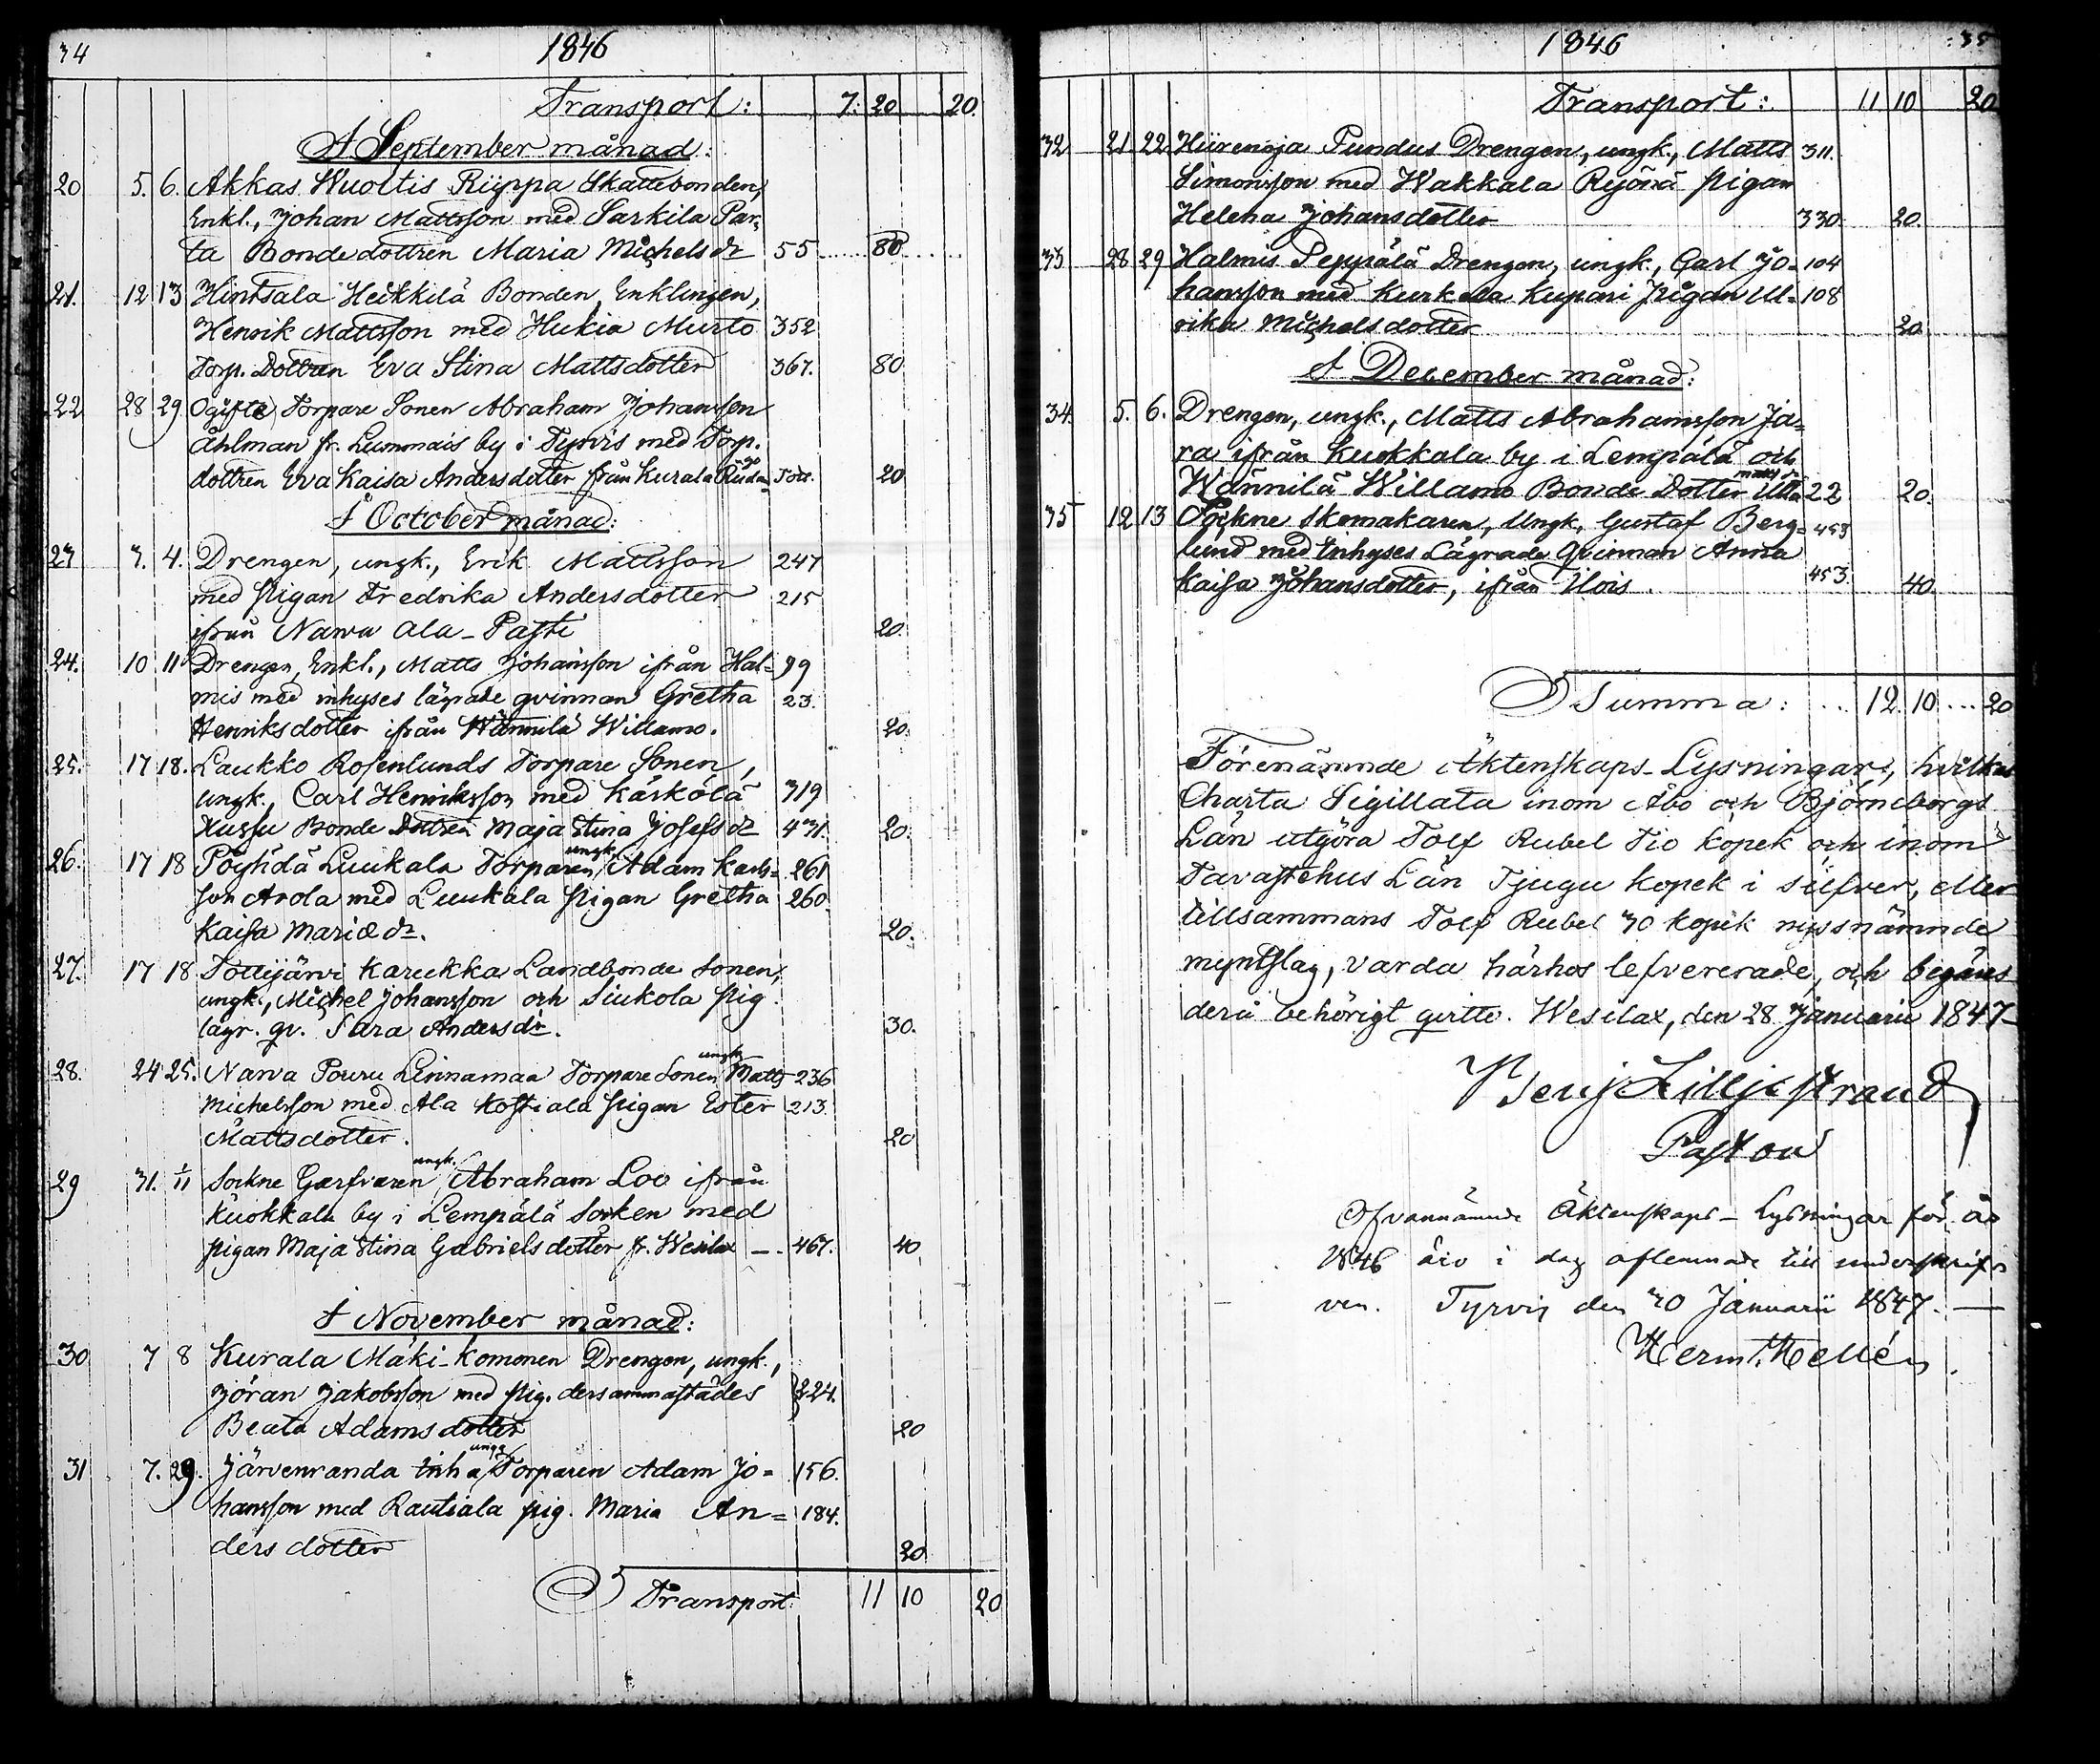 34 1846
Transport: 7. 20 20.
I September månad:
20 5. 6. Akkas Wuoltis Riippa Skattebonden,
Enkl., Johan Mattsson med Sarkila Par-
ta Bondedottren Maria Michelsdr 55 80
21. 12 13 Hintsala Heikkilä Bonden, Enklingen,
Henrik Mattsson med Hukia Murto 352
Torp. Dottren Eva Stina Mattsdotter 367. 80
22 28 29 Ogifte Torpare Sonen Abraham Johansson
Åhlman fr. Lummais by i Tyrvis med Torp.
dottren Eva Kaisa Andersdotter från Kurala 20
I October månad:
23 3. 4. Drengen, ungk., Erik Mattsson 247
med pigan Fredrika Andersdotter 215
ifrån Narva Ala-Pasti 20.
24. 10 11 Drengen, Enkl., Matts Johansson ifrån Hal- 99
mis med inhyses lägrade qvinnan Gretha 23.
Henriksdotter ifrån Wännilä Willamo. 20.
25. 17 18. Laukko Rosenlunds Torpare Sonen,
ungk., Carl Henriksson med Kärkölä 319
Xussu Bonde Dottren Maja Stina Josefsdr 431. 20.
26. 17 18 Pöyhölä Luukala Torparen, ungk. Adam Karls- 261
son Arola med Luukala pigan Gretha 260.
Kaisa Mariædr. 20.
27. 17 18 Tottijärvi Karukka Landbonde Sonen,
ungk., Michel Johansson och Siukola pig.
lägr. qv. Sara Andersdr. 30.
28. 24 25. Narva Pouru Linnamaa Torpare Sonen ungk. Matts 236
Michelsson med Ala Kostiala pigan Ester 213.
Mattsdotter. 20
29 31. 1/11 Sockne Garfvaren ungk. Abraham Loo ifrån
Kuokkala by i Lempälä Socken med
pigan Maja Stina Gabrielsdotter fr. Wesilax 467. 40
I November månad:
30 7 8 Kurala Mäki-Komonen Drengen, ungk.,
Jöran Jakobsson med pig. dersammastädes 224.
Beata Adamsdotter 20
31 7. 29. Järvenranda inha ungk Torparen Adam Jo- 156.
hansson med Rautiala pig. Maria An- 184.
dersdotter 20
Transport 11 10 20
1846 35
Transport: 11 10 20
32 21 22 Hiirenoja Pundus Drengen, ungk., Matts 311.
Simonsson med Wakkala Rejörä pigan
Helena Johansdotter 330. 20.
33 28 29 Halmis Peppälä Drengen, ungk., Carl Jo- 104
hansson med Kurkela Kupari Pigan Ul- 108
rika Michelsdotter 20
I December månad:
34. 5. 6. Drengen, ungk., Matts Abrahamsson Ja-
ra ifrån Kuokkala by i Lempälä och
Wännilä Willamo Bonde Dotter Ulla Mattsdr 22 20.
35 12 13 Sockne skomakaren, Ungk. Gustaf Berg- 453
lund med Inhyses Lägrade Qvinnan Anna
Kaisa Johansdotter, ifrån Ilois. 453. 40.
Summa: 12. 10 20
Förenämnde Äktenskaps-Lysningar, hvilkas
Charta Sigillata inom Åbo och Björneborgs
Län utgöra Tolf Rubel Tio Kopek och inom
Tavastehus Län Tjugu Kopek i Silfver, eller
tillsammans Tolf Rubel 30 Kopek nyssnämnde
myntslag, varda härhos lefvererade, och begäres
derå behörigt qvitto. Wesilax, den 28 Januarii 1847
Benj Lilljestrand
Pastor
Ofvannämnde Äktenskaps-Lysningar för år
1846 äro i dag aflemnade till underskrif-
ven. Tyrvis den 30 Januarii 1847.
Herm. Hellén.